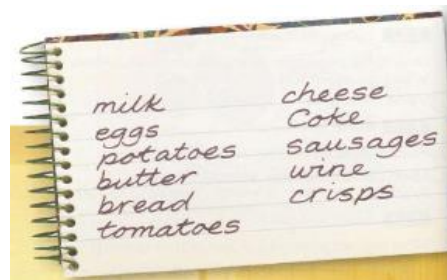 milk
eggs
potatoes
butter
bread
tomatoes
cheese
Coke
sausages
wine
crisps